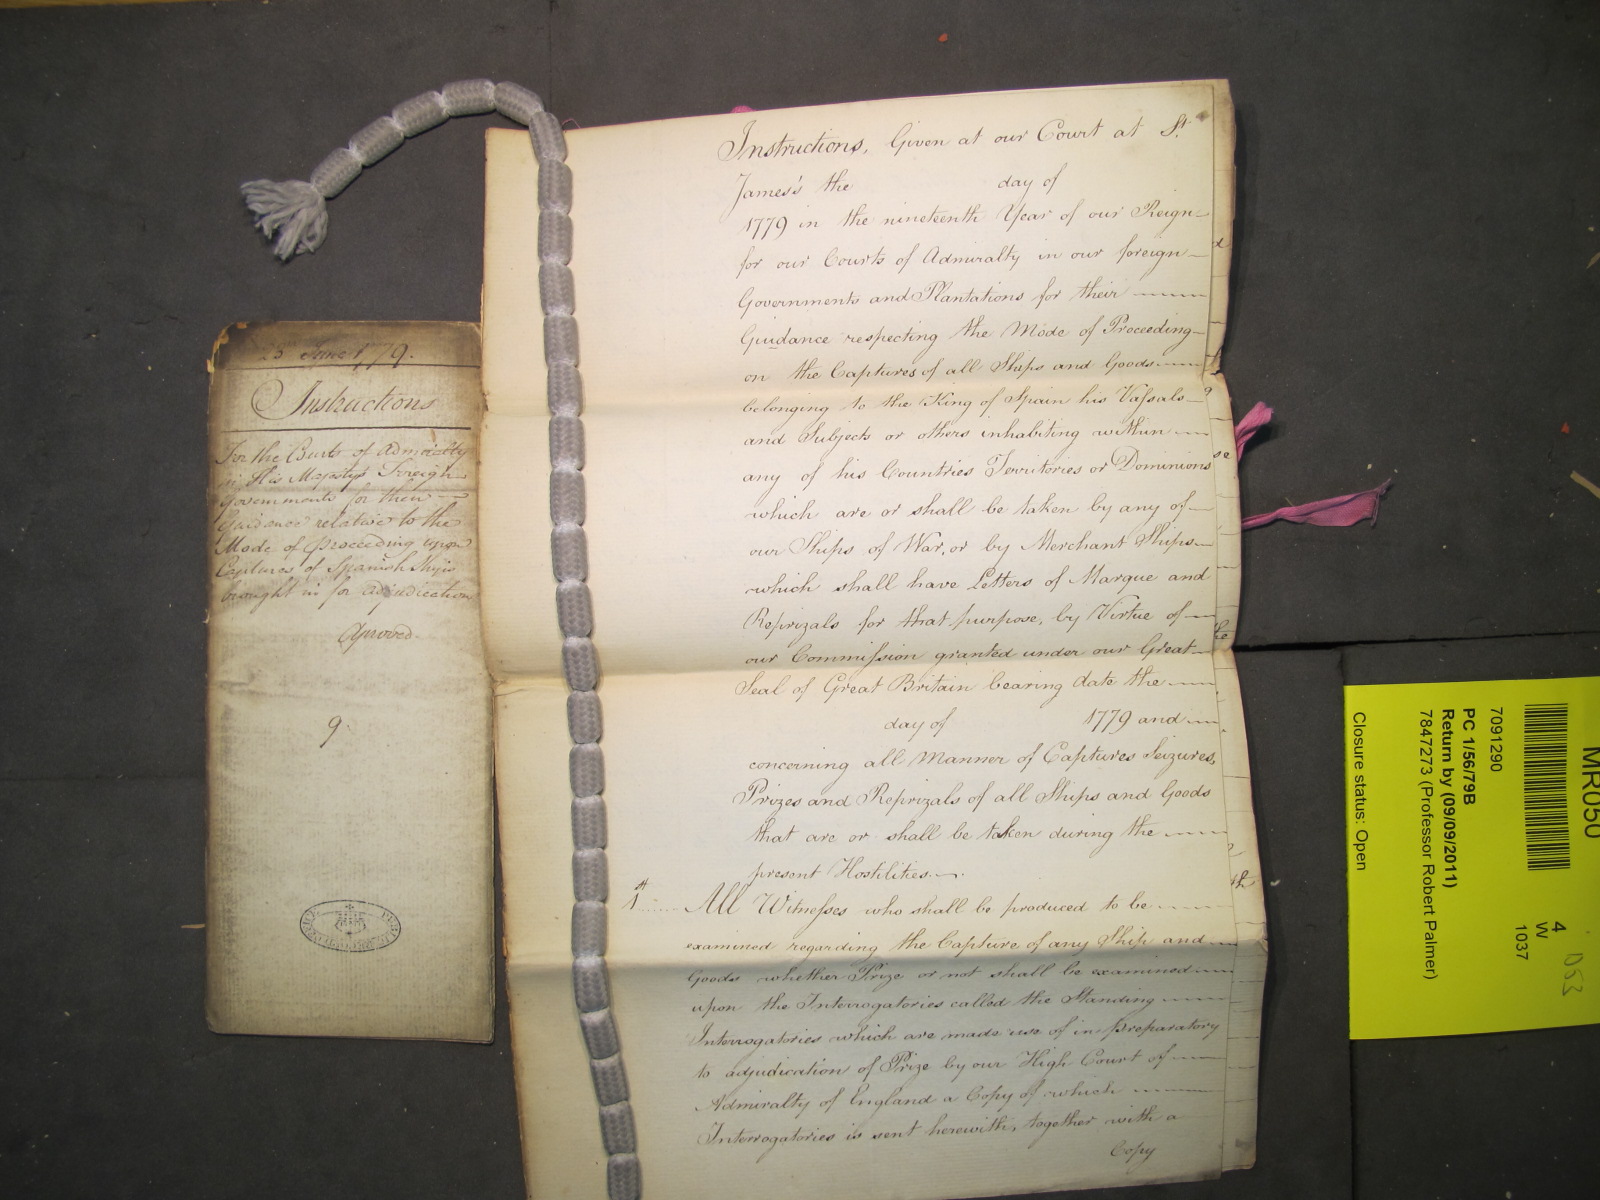 23 June 1779.
Instructions
For the Courts of Admiralty
in His Majestys Foreign
Governments for their
Guidance relative to the
Mode of Proceeding upon
Captures of Spanish Ships
brought in for Adjudication
Aproved
9.
Instructions, Given at our Court at St
James's the day of
1779 in the nineteenth Year of our Reign
for our Courts of Admiralty in our foreign
Governments and Plantations for their
Guidance respecting the Mode of Proceeding
on the Captures of all Ships and Goods
belonging to the King of Spain his Vaſsals
and Subjects or others inhabiting within
any of his Countries Territories or Dominions
which are or shall be taken by any of
our Ships of War, or by Merchant Ships
which shall have Letters of Marque and
Reprizals for that purpose, by Virtue of
our Commiſsion granted under our Great
Seal of Great Britain bearing date the
day of 1779 and
concerning all Manner of Captures Seizures,
Prizes and Reprizals of all Ships and Goods
that are or shall be taken during the
present Hostilities.
1st All Witneſses who shall be produced to be
examined regarding the Capture of any Ship and
Goods whether Prize or not shall be examined
upon the Interrogatories called the Standing
Interrogatories which are made use of in preparatory
to adjudication of Prize by our High Court of
Admiralty of England a Copy of which
Interrogatories is sent herewith, together with a
Copy
MR050
4
W
1037
1053
7091290
PC 1/56/79B
Return by (09/09/2011)
7847273 (Professor Robert Palmer)
Closure status: Open